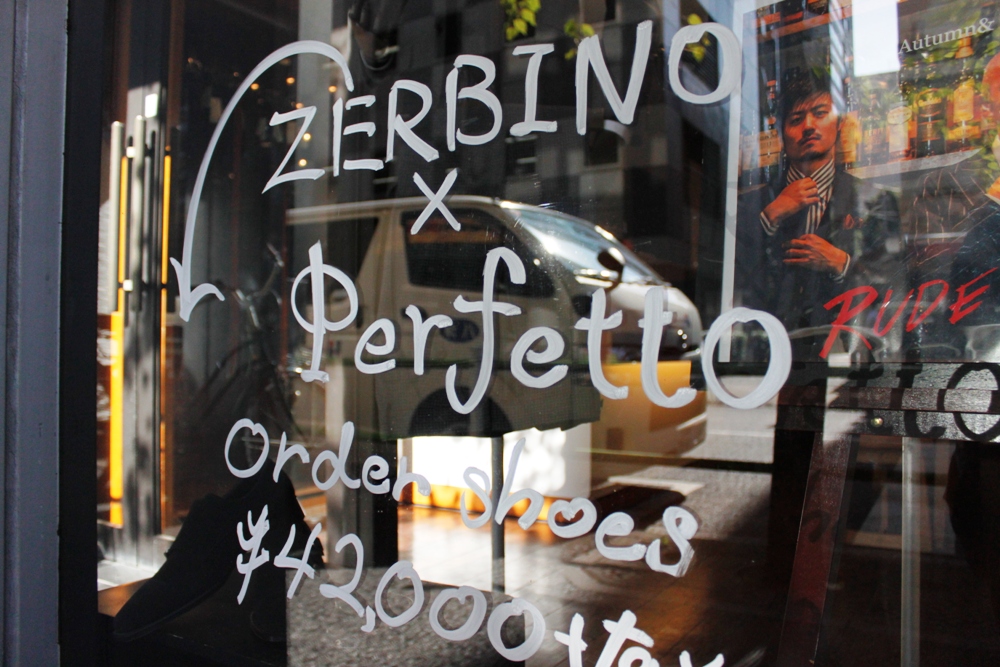 ZERBINO
×
Perfetto
Order shoes
¥42,000+tax
Autumn&
RUDE